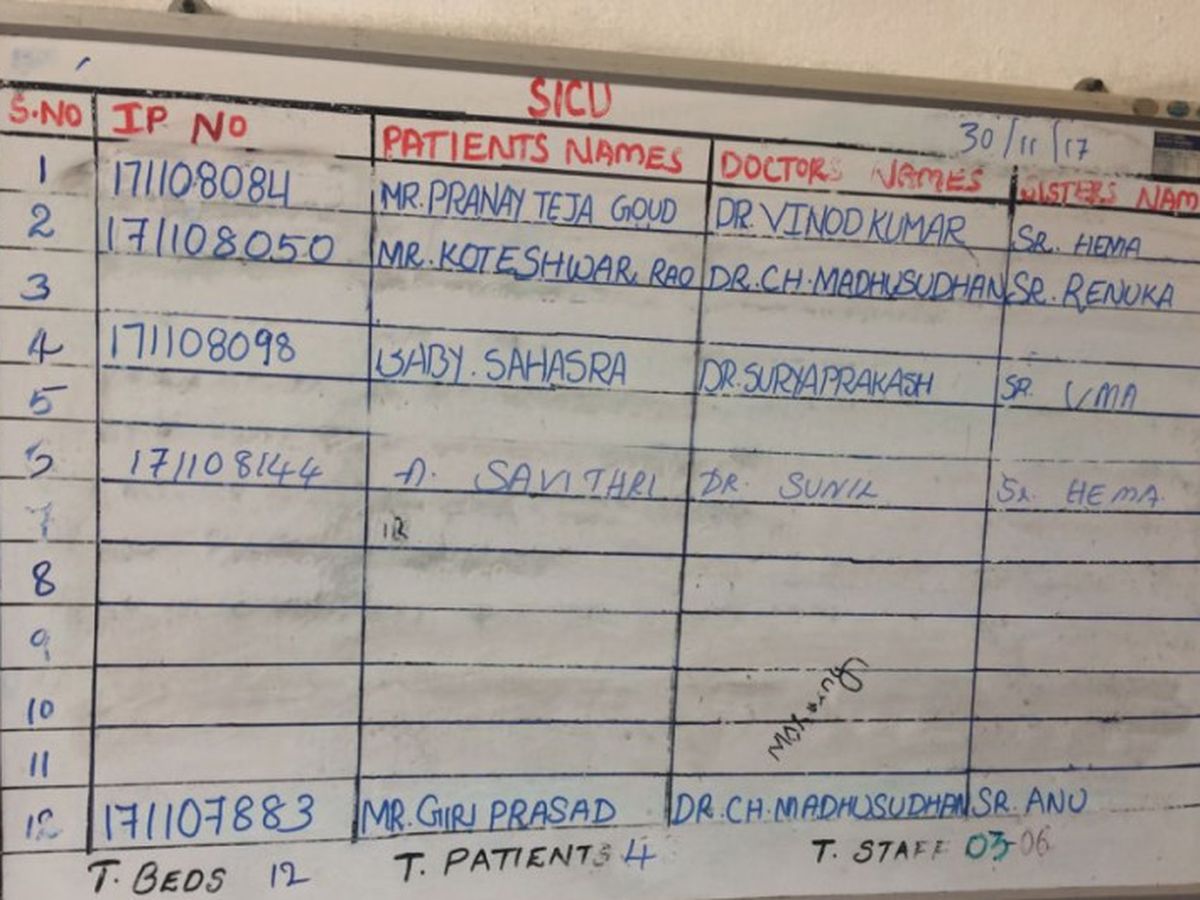 SICU
30/11/17
S.NO IP NO PATIENTS NAMES DOCTORS NAMES SISTERS NAM
1 171108084 MR. PRANAY TEJA GOUD DR. VINOD KUMAR SR. HEMA
2 171108050 MR. KOTESHWAR RAO DR. CH. MADHUSUDHAN SR. RENUKA
3
4 171108098 BABY. SAHASRA DR. SURYAPRAKASH SR. UMA
5
171108144 A. SAVITHRI DR. SUNIL Sr. HEMA
7
8
9
10
11
12 171107883 MR. GIRI PRASAD DR. CH. MADHUSUDHAN SR. ANU
T. BEDS 12 T. PATIENTS 4 T. STAFF 03-06